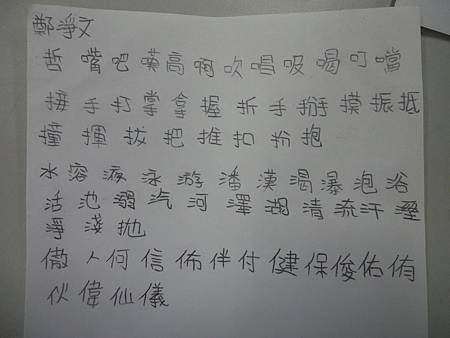 鄭淨文
哲 嘴 吧 嘆 高 啊 吹 唱 吸 喝 叮 噹
接 手 打 掌 拿 握 折 手 掰 摸 振 抵
撞 揮 拔 把 推 扣 扮 抱
水 溶 液 泳 游 潘 漢 渴 瀑 泡 浴
活 池 溺 汽 河 澤 湖 清 流 汗 溼
淨 淺 拋
傲 人 何 信 佈 伴 付 健 保 俊 佑 侑
伙 偉 仙 儀